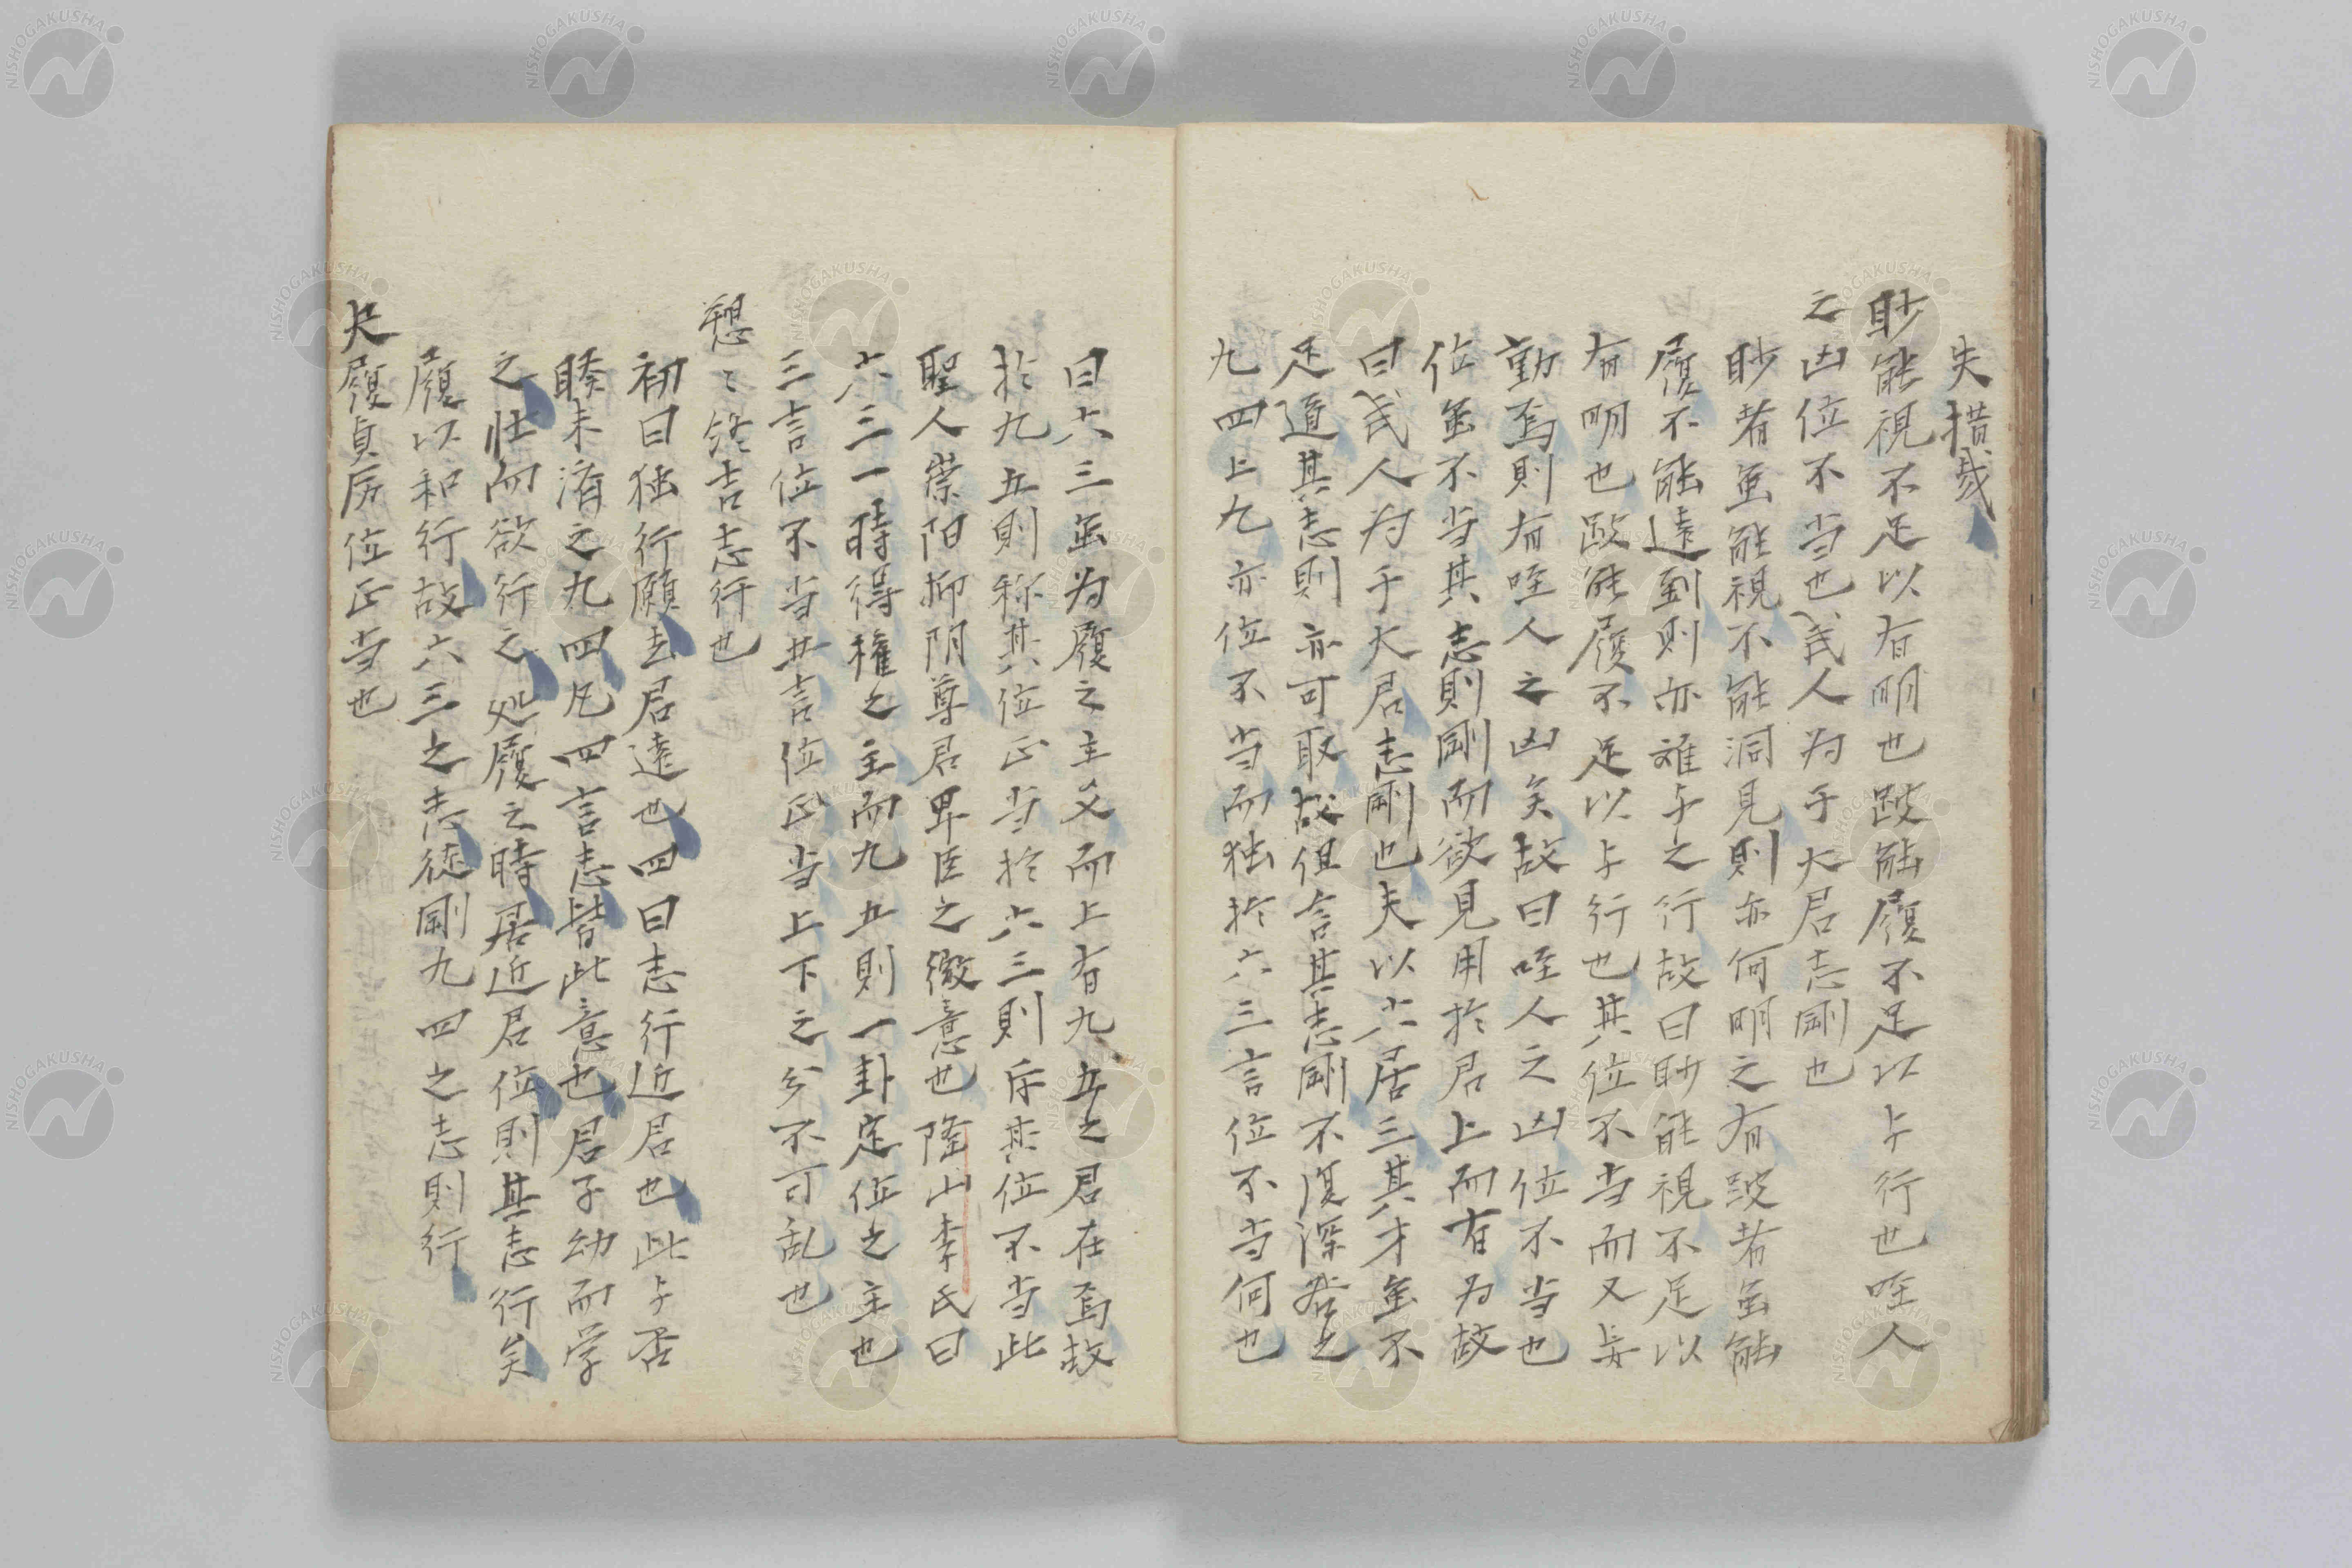 失措哉
眇能視不足以有明也跛能履不足以与行也咥人
之凶位不当也武人为于大君志剛也
眇者虽能視不能洞見則亦何明之有跛者虽能
履不能遠到則亦难与之行故曰眇能視不足以
有明也跛能履不足以与行也其位不当而又妄
動焉則有咥人之凶矣故曰咥人之凶位不当也
位虽不当其志則剛而欲見用於君上而有为故
曰武人为于大君志剛也夫以六居三其才虽不
足道其志則亦可取故但言其志剛不復深咎之
九四上九亦位不当而独於六三言位不当何也
曰六三虽为履之主爻而上有九五之君在焉故
於九五則称其位正当於六三則斥其位不当此
聖人崇阳抑阴尊君卑臣之微意也隆山李氏曰
六三一時得権之主而九五則一卦定位之主也
三言位不当五言位正当上下之分不可乱也
愬〻終吉志行也
初曰独行願去君遠也四曰志行近君也此与否
睽未济之九四凡四言志皆此意也君子幼而学
之壮而欲行之処履之時居近君位則其志行矣
履以和行故六三之志徒剛九四之志則行
夬履貞厉位正当也
NISHOGAKUSHA